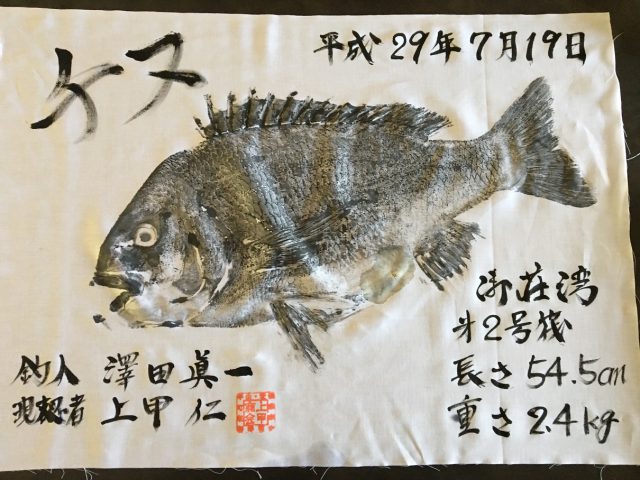 チヌ
平成29年7月19日
御荘湾
才2号筏
長さ54.5cm
重さ2.4kg
釣人 澤田眞一
現認者 上甲 仁